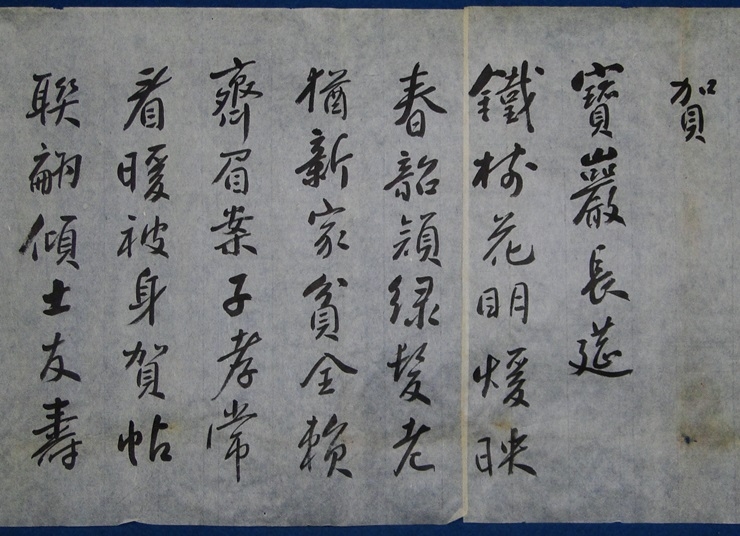 賀
寶巖長筵
鐵樹花明煖映
春韶顔綠髮老
猶新家貧全賴
齊眉案子孝常
看暖被身賀帖
聯翩傾士友壽